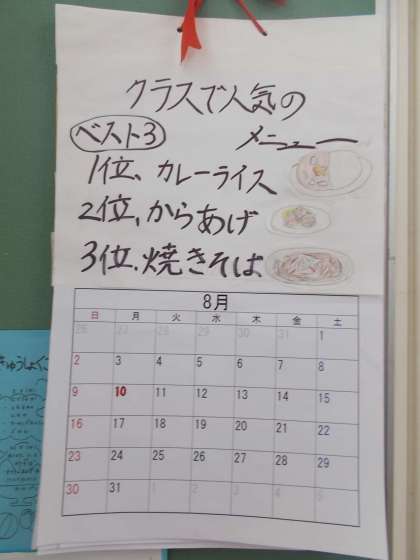 クラスで人気の
ベスト3 メニュー
1位、カレーライス
2位、からあげ
3位、焼きそば
8月
日 月 火 水 木 金 土
26 27 28 29 30 31 1
2 3 4 5 6 7 8
9 10 11 12 13 14 15
16 17 18 19 20 21 22
23 24 25 26 27 28 29
30 31 1 2 3 4 5